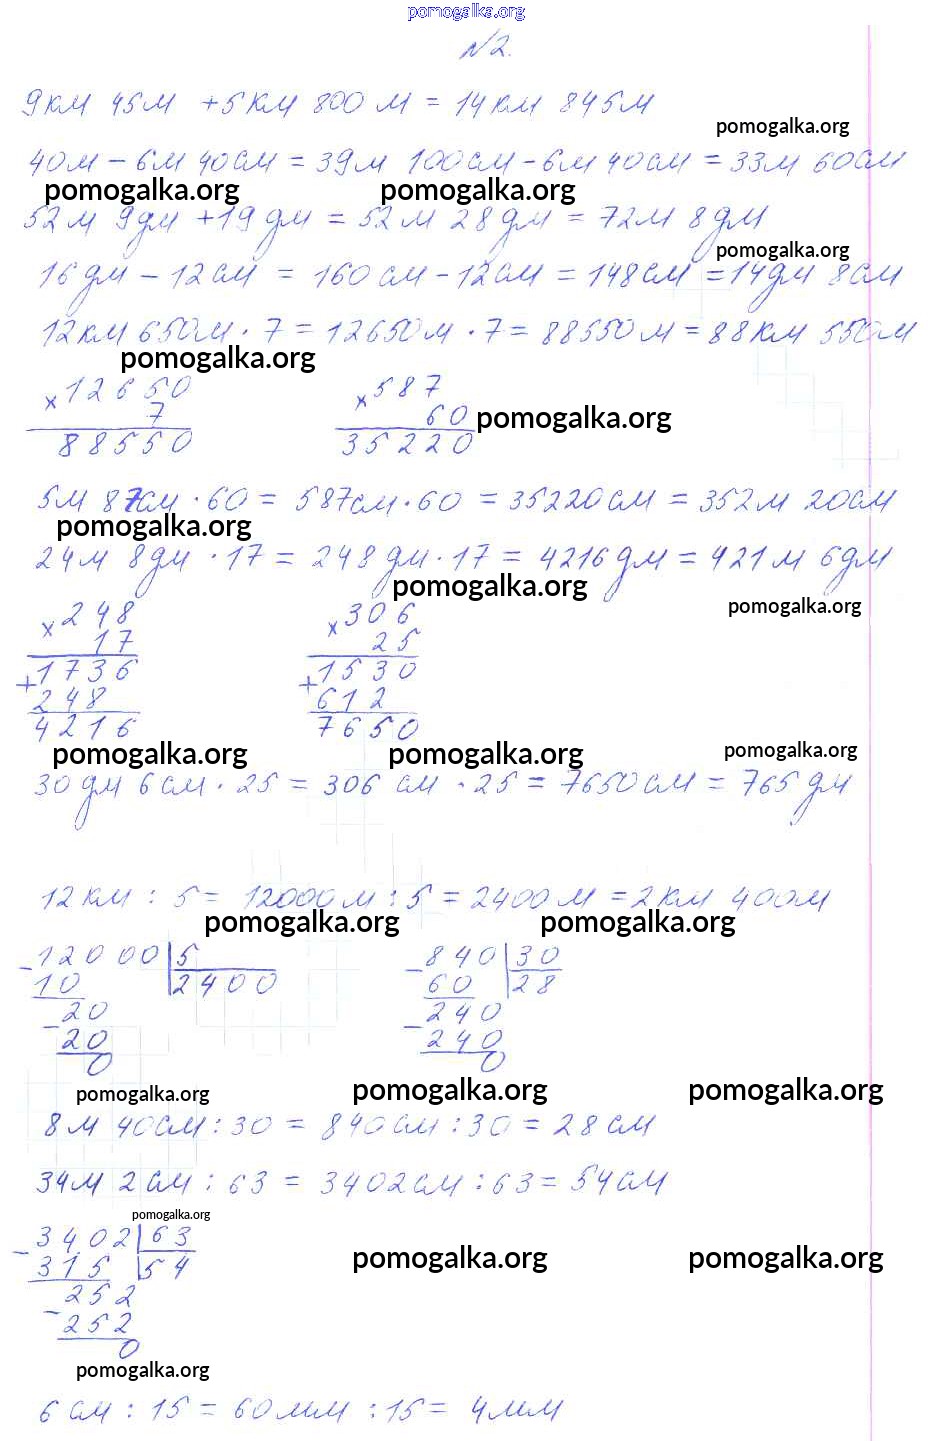 pomogalka.org
№2.
9км 45м +5км 800м = 14км 845м
pomogalka.org
40м - 6м 40см = 39м 100см - 6м 40см = 33м 60см
pomogalka.org pomogalka.org
52м 9дм +19дм = 52м 28дм = 72м 8дм
pomogalka.org
16дм - 12см = 160см - 12см = 148см = 14дм 8см
12км 650м · 7 = 12650м · 7 = 88550м = 88км 550м
pomogalka.org
×12650 ×587
7 60 pomogalka.org
88550 35220
5м 87см · 60 = 587см · 60 = 35220см = 352м 20см
pomogalka.org
24м 8дм · 17 = 248дм · 17 = 4216дм = 421м 6дм
pomogalka.org
pomogalka.org
×248 ×306
17 25
+1736 +1530
248 612
4216 7650
pomogalka.org pomogalka.org pomogalka.org
30дм 6см · 25 = 306см · 25 = 7650см = 765дм
12км : 5 = 12000м : 5 = 2400м = 2км 400м
pomogalka.org pomogalka.org
-12000 5 -840 30
10 2400 60 28
-20 -240
20 240
0 0
pomogalka.org pomogalka.org pomogalka.org
8м 40см : 30 = 840см : 30 = 28см
34м 2см : 63 = 3402см : 63 = 54см
pomogalka.org
-3402 63
315 54 pomogalka.org pomogalka.org
-252
252
0
pomogalka.org
6см : 15 = 60мм : 15 = 4мм